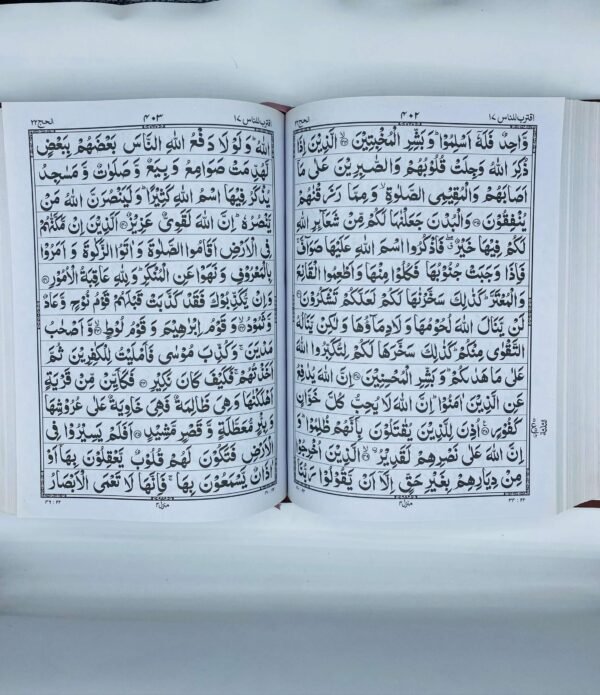 اقترب للناس ١٧
٤٠٢
الحج ٢٢
وَّاحِدٌ فَلَهٗۤ اَسْلِمُوْا ؕ وَ بَشِّرِ الْمُخْبِتِیْنَ ۙ۝ الَّذِیْنَ اِذَا
ذُكِرَ اللّٰهُ وَجِلَتْ قُلُوْبُهُمْ وَ الصّٰبِرِیْنَ عَلٰى مَاۤ
اَصَابَهُمْ وَ الْمُقِیْمِی الصَّلٰوةِ ۙ وَ مِمَّا رَزَقْنٰهُمْ
یُنْفِقُوْنَ ۝ وَ الْبُدْنَ جَعَلْنٰهَا لَكُمْ مِّنْ شَعَآىِٕرِ اللّٰهِ
لَكُمْ فِیْهَا خَیْرٌ ۖۗ فَاذْكُرُوا اسْمَ اللّٰهِ عَلَیْهَا صَوَآفَّ ۚ
فَاِذَا وَجَبَتْ جُنُوْبُهَا فَكُلُوْا مِنْهَا وَ اَطْعِمُوا الْقَانِعَ
وَ الْمُعْتَرَّ ؕ كَذٰلِكَ سَخَّرْنٰهَا لَكُمْ لَعَلَّكُمْ تَشْكُرُوْنَ ۝
لَنْ یَّنَالَ اللّٰهَ لُحُوْمُهَا وَ لَا دِمَآؤُهَا وَ لٰكِنْ یَّنَالُهُ
التَّقْوٰى مِنْكُمْ ؕ كَذٰلِكَ سَخَّرَهَا لَكُمْ لِتُكَبِّرُوا اللّٰهَ
عَلٰى مَا هَدٰىكُمْ ؕ وَ بَشِّرِ الْمُحْسِنِیْنَ ۝ اِنَّ اللّٰهَ یُدٰفِعُ
عَنِ الَّذِیْنَ اٰمَنُوْا ؕ اِنَّ اللّٰهَ لَا یُحِبُّ كُلَّ خَوَّانٍ
كَفُوْرٍ ۝ اُذِنَ لِلَّذِیْنَ یُقٰتَلُوْنَ بِاَنَّهُمْ ظُلِمُوْا ؕ وَ
اِنَّ اللّٰهَ عَلٰى نَصْرِهِمْ لَقَدِیْرُ ۙ۝ الَّذِیْنَ اُخْرِجُوْا
مِنْ دِیَارِهِمْ بِغَیْرِ حَقٍّ اِلَّاۤ اَنْ یَّقُوْلُوْا رَبُّنَا
منزل ٤
اقترب للناس ١٧
٤٠٣
الحج ٢٢
اللّٰهُ ؕ وَ لَوْ لَا دَفْعُ اللّٰهِ النَّاسَ بَعْضَهُمْ بِبَعْضٍ
لَّهُدِّمَتْ صَوَامِعُ وَ بِیَعٌ وَّ صَلَوٰتٌ وَّ مَسٰجِدُ
یُذْكَرُ فِیْهَا اسْمُ اللّٰهِ كَثِیْرًا ؕ وَ لَیَنْصُرَنَّ اللّٰهُ مَنْ
یَّنْصُرُهٗ ؕ اِنَّ اللّٰهَ لَقَوِیٌّ عَزِیْزٌ ۝ اَلَّذِیْنَ اِنْ مَّكَّنّٰهُمْ
فِی الْاَرْضِ اَقَامُوا الصَّلٰوةَ وَ اٰتَوُا الزَّكٰوةَ وَ اَمَرُوْا
بِالْمَعْرُوْفِ وَ نَهَوْا عَنِ الْمُنْكَرِ ؕ وَ لِلّٰهِ عَاقِبَةُ الْاُمُوْرِ ۝
وَ اِنْ یُّكَذِّبُوْكَ فَقَدْ كَذَّبَتْ قَبْلَهُمْ قَوْمُ نُوْحٍ وَّ عَادٌ
وَّ ثَمُوْدُ ۙ۝ وَ قَوْمُ اِبْرٰهِیْمَ وَ قَوْمُ لُوْطٍ ۙ۝ وَّ اَصْحٰبُ
مَدْیَنَ ۚ وَ كُذِّبَ مُوْسٰى فَاَمْلَیْتُ لِلْكٰفِرِیْنَ ثُمَّ
اَخَذْتُهُمْ ۚ فَكَیْفَ كَانَ نَكِیْرِ ۝ فَكَاَیِّنْ مِّنْ قَرْیَةٍ
اَهْلَكْنٰهَا وَ هِیَ ظَالِمَةٌ فَهِیَ خَاوِیَةٌ عَلٰى عُرُوْشِهَا
وَ بِئْرٍ مُّعَطَّلَةٍ وَّ قَصْرٍ مَّشِیْدٍ ۝ اَفَلَمْ یَسِیْرُوْا فِی
الْاَرْضِ فَتَكُوْنَ لَهُمْ قُلُوْبٌ یَّعْقِلُوْنَ بِهَاۤ اَوْ
اٰذَانٌ یَّسْمَعُوْنَ بِهَا ۚ فَاِنَّهَا لَا تَعْمَى الْاَبْصَارُ
منزل ٤